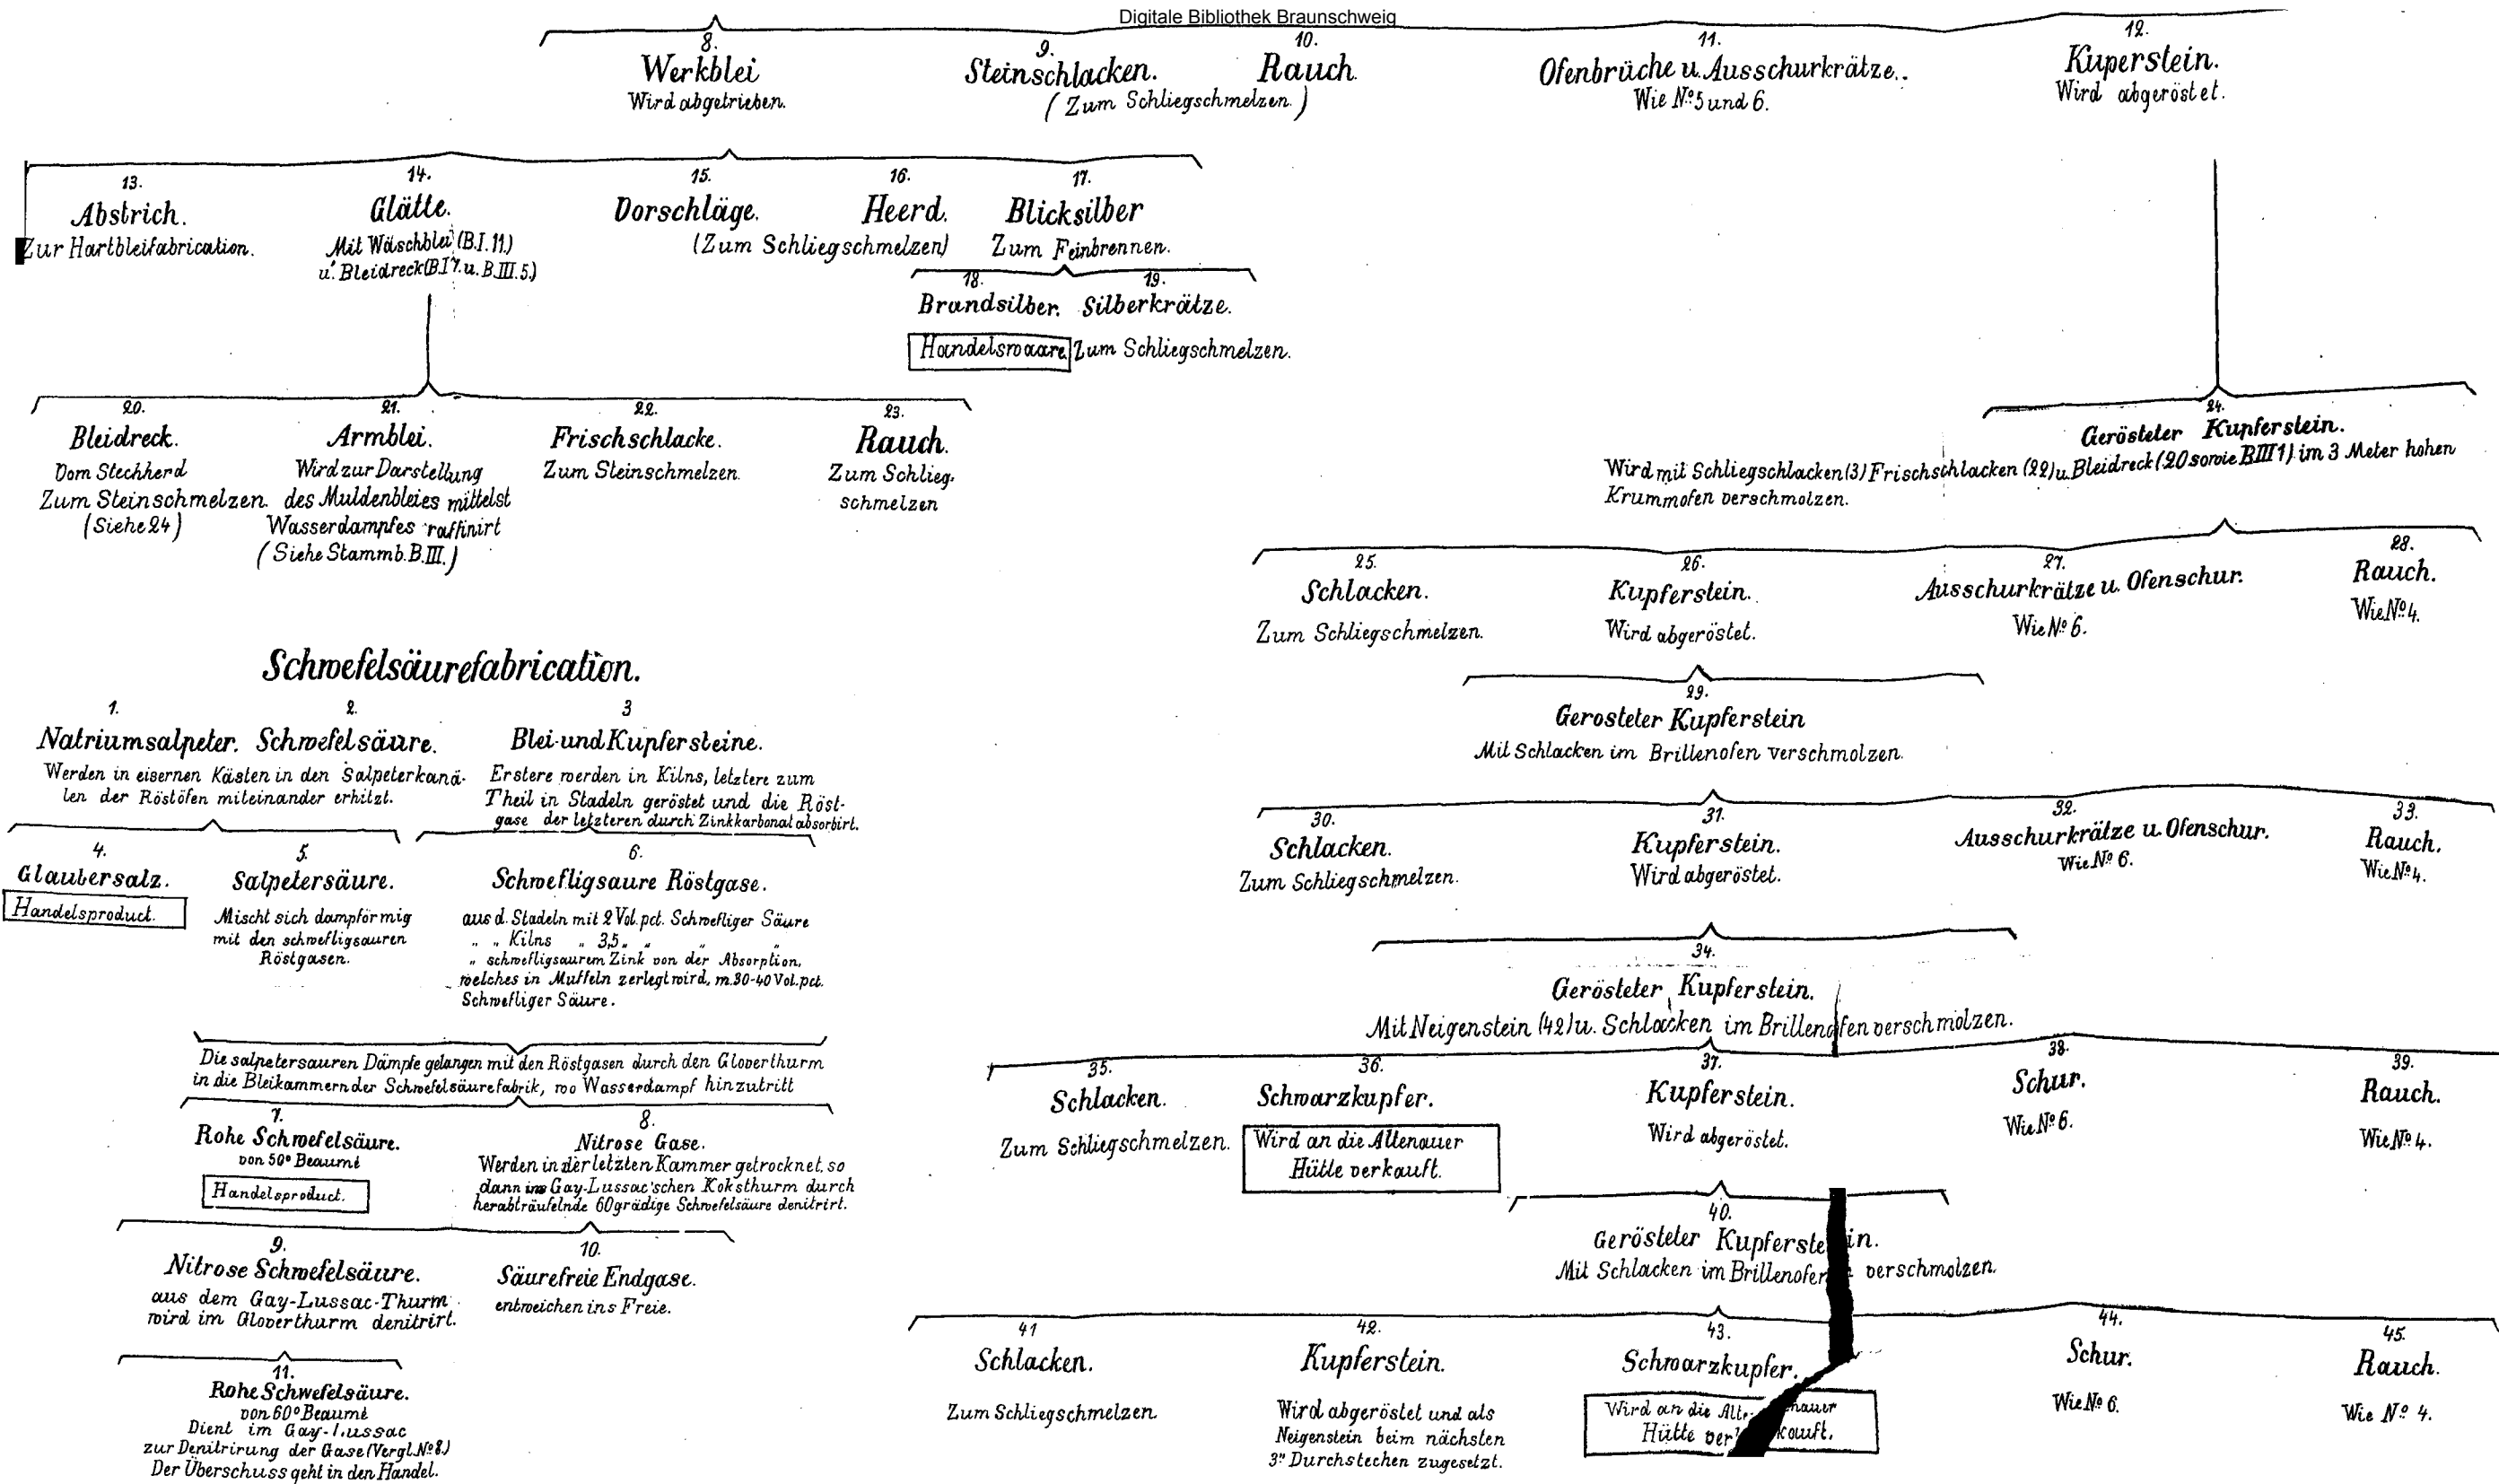 Digitale Bibliothek Braunschweig
8.
Werkblei
Wird abgetrieben.
9.
Steinschlacken.
10.
Rauch.
(Zum Schliegschmelzen.)
11.
Ofenbrüche u. Ausschurkrätze..
Wie No 5 und 6.
12.
Kuperstein.
Wird abgeröstet.
13.
Abstrich.
Zur Hartbleifabrication.
14.
Glätte.
Mit Wäschblei (B.I.11.)
u. Bleidreck (B.I 7. u. B.III.5.)
15.
Vorschläge.
16.
Heerd.
(Zum Schliegschmelzen)
17.
Blicksilber
Zum Feinbrennen.
18.
Brandsilber.
Handelswaare
19.
Silberkrätze.
Zum Schliegschmelzen.
20.
Bleidreck.
Vom Stechherd
Zum Steinschmelzen.
(Siehe 24)
21.
Armblei.
Wird zur Darstellung
des Muldenbleies mittelst
Wasserdampfes raffinirt
(Siehe Stammb. B.III.)
22.
Frischschlacke.
Zum Steinschmelzen.
23.
Rauch.
Zum Schlieg.
schmelzen
24.
Gerösteter Kupferstein.
Wird mit Schliegschlacken (3) Frischschlacken (22) u. Bleidreck (20 sowie B III 1) im 3 Meter hohen
Krummofen verschmolzen.
25.
Schlacken.
Zum Schliegschmelzen.
26.
Kupferstein.
Wird abgeröstet.
27.
Ausschurkrätze u. Ofenschur.
Wie No 6.
28.
Rauch.
Wie No 4.
29.
Gerosteter Kupferstein
Mit Schlacken im Brillenofen verschmolzen.
30.
Schlacken.
Zum Schliegschmelzen.
31.
Kupferstein.
Wird abgeröstet.
32.
Ausschurkrätze u. Ofenschur.
Wie No 6.
33.
Rauch.
Wie No 4.
34.
Gerösteter Kupferstein.
Mit Neigenstein (42) u. Schlacken im Brillenofen verschmolzen.
35.
Schlacken.
Zum Schliegschmelzen.
36.
Schwarzkupfer.
Wird an die Altenauer
Hütte verkauft.
37.
Kupferstein.
Wird abgeröstet.
38.
Schur.
Wie No 6.
39.
Rauch.
Wie No 4.
40.
Gerösteter Kupferstein.
Mit Schlacken im Brillenofen verschmolzen.
41
Schlacken.
Zum Schliegschmelzen.
42.
Kupferstein.
Wird abgeröstet und als
Neigenstein beim nächsten
3" Durchstechen zugesetzt.
43.
Schwarzkupfer.
Wird an die Altenauer
Hütte verkauft.
44.
Schur.
Wie No 6.
45.
Rauch.
Wie No 4.
Schwefelsäurefabrication.
1.
Natriumsalpeter.
2.
Schwefelsäure.
Werden in eisernen Kästen in den Salpeterkanä-
len der Röstöfen miteinander erhitzt.
3
Blei- und Kupfersteine.
Erstere werden in Kilns, letztere zum
Theil in Stadeln geröstet und die Röst-
gase der letzteren durch Zinkkarbonat absorbirt.
4.
Glaubersalz.
Handelsproduct.
5.
Salpetersäure.
Mischt sich dampförmig
mit den schwefligsauren
Röstgasen.
6.
Schwefligsaure Röstgase.
aus d. Stadeln mit 2 Vol. pct. Schwefliger Säure
" " Kilns " 3,5 " " " "
" schwefligsaurem Zink von der Absorption,
welches in Muffeln zerlegt wird, m. 30-40 Vol. pct.
Schwefliger Säure.
Die salpetersauren Dämpfe gelangen mit den Röstgasen durch den Gloverthurm
in die Bleikammern der Schwefelsäurefabrik, wo Wasserdampf hinzutritt
7.
Rohe Schwefelsäure.
von 50° Beaumé
Handelsproduct.
8.
Nitrose Gase.
Werden in der letzten Kammer getrocknet, so
dann ins Gay-Lussac'schen Koksthurm durch
herabträufelnde 60grädige Schwefelsäure denitrirt.
9.
Nitrose Schwefelsäure.
aus dem Gay-Lussac-Thurm
wird im Gloverthurm denitrirt.
10.
Säurefreie Endgase.
entweichen ins Freie.
11.
Rohe Schwefelsäure.
von 60° Beaumé
Dient im Gay-Lussac
zur Denitrirung der Gase (Vergl. No 8.)
Der Überschuss geht in den Handel.